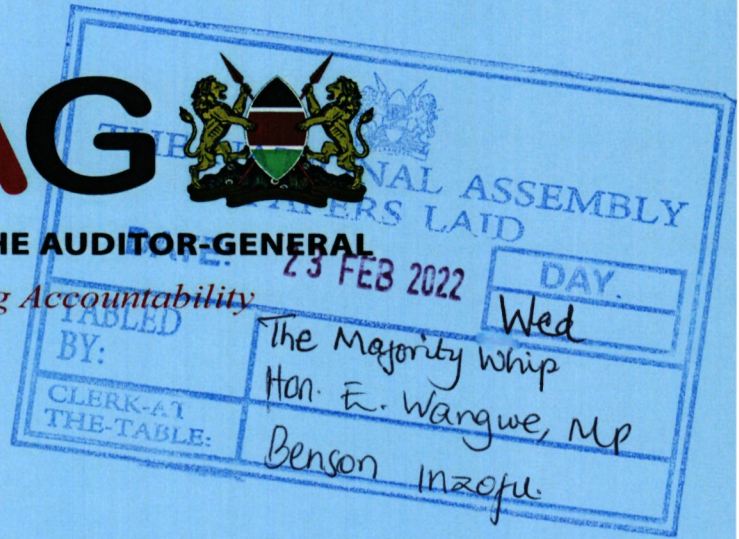 AG
HE AUDITOR-GENERAL
g Accountability
THE NATIONAL ASSEMBLY
PAPERS LAID
DATE: 23 FEB 2022
DAY.
Wed
TABLED BY:
The Majority Whip
Hon. E. Wangwe, MP
CLERK-AT THE-TABLE:
Benson Inzofu.